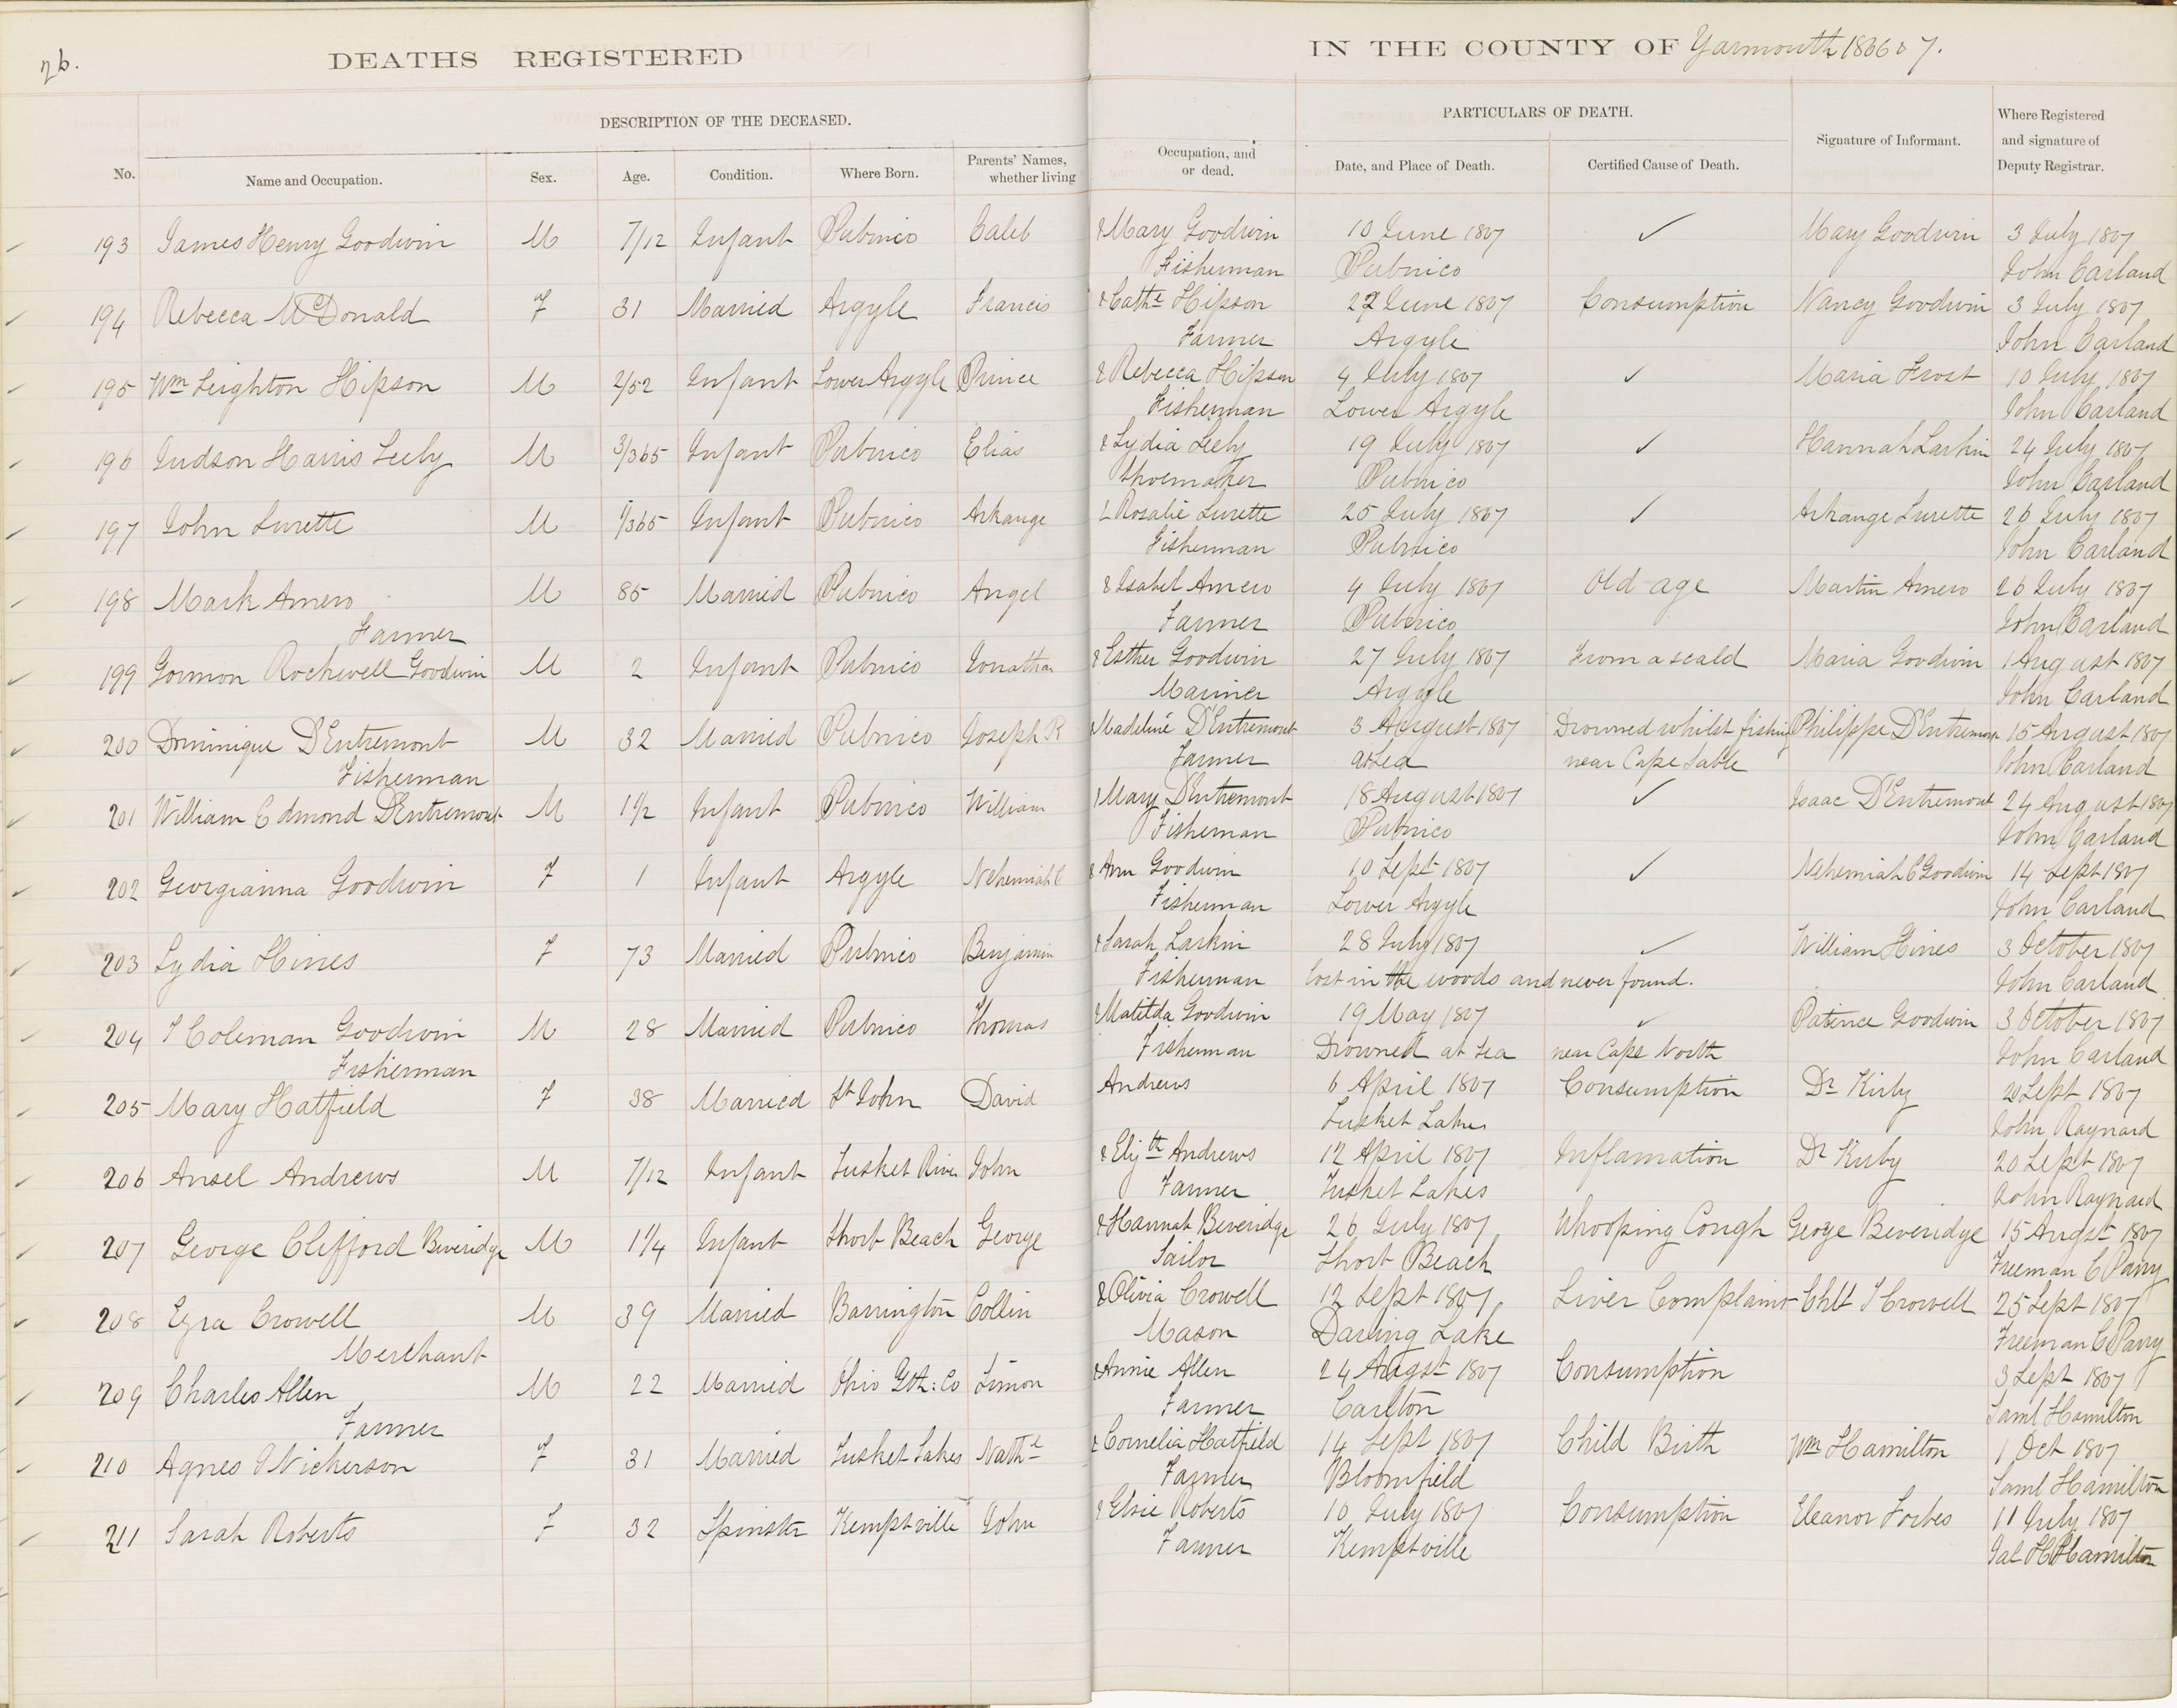 26.
DEATHS REGISTERED
IN THE COUNTY OF Yarmouth 1866 & 7.
DESCRIPTION OF THE DECEASED.
PARTICULARS OF DEATH.
No. Name and Occupation. Sex. Age. Condition. Where Born. Parents' Names, whether living
Occupation, and or dead. Date, and Place of Death. Certified Cause of Death. Signature of Informant. Where Registered and signature of Deputy Registrar.
193 James Henry Goodwin M 7/12 Infant Pubnico Caleb & Mary Goodwin 10 June 1867 ✓ Mary Goodwin 3 July 1867
Fisherman Pubnico John Carland
194 Rebecca McDonald F 31 Married Argyle Francis & Cathe Hipson 22 June 1867 Consumption Nancy Goodwin 3 July 1867
Farmer Argyle John Carland
195 Wm Leighton Hipson M 2/52 Infant Lower Argyle Prince & Rebecca Hipson 4 July 1867 ✓ Maria Frost 10 July 1867
Fisherman Lower Argyle John Carland
196 Judson Harris Seeley M 3/365 Infant Pubnico Elias & Lydia Seely 19 July 1867 ✓ Hannah Larkin 24 July 1867
Shoemaker Pubnico John Carland
197 John Surette M 1/365 Infant Pubnico Arkange & Rosalie Surette 25 July 1867 ✓ Arkange Surette 26 July 1867
Fisherman Pubnico John Carland
198 Mark Amero M 85 Married Pubnico Angel & Isabel Amero 4 July 1867 Old age Martin Amero 26 July 1867
Farmer Farmer Pubnico John Carland
199 Gormon Rockwell Goodwin M 2 Infant Pubnico Jonathan & Esther Goodwin 27 July 1867 From a scald Maria Goodwin 1 August 1867
Mariner Argyle John Carland
200 Dominique D'Entremont M 32 Married Pubnico Joseph R & Madeline D'Entremont 3 August 1867 Drowned whilst fishing Philippe D'Entremont 15 August 1867
Fisherman Farmer at Sea near Cape Sable John Carland
201 William Edmond D'Entremont M 1 1/2 Infant Pubnico William & Mary D'Entremont 18 August 1867 ✓ Isaac D'Entremont 24 August 1867
Fisherman Pubnico John Carland
202 Georgianna Goodwin F 1 Infant Argyle Nehemiah C & Ann Goodwin 10 Sept 1867 ✓ Nehemiah C Goodwin 14 Sept 1867
Fisherman Lower Argyle John Carland
203 Lydia Hines F 73 Married Pubnico Benjamin & Sarah Larkin 28 July 1867 ✓ William Hines 3 October 1867
Fisherman lost in the woods and never found. John Carland
204 T Coleman Goodwin M 28 Married Pubnico Thomas & Matilda Goodwin 19 May 1867 ✓ Patience Goodwin 3 October 1867
Fisherman Fisherman Drowned at Sea near Cape North John Carland
205 Mary Hatfield F 38 Married St John David Andrews 6 April 1867 Consumption Dr Kirby 20 Sept 1867
Tusket Lakes John Raynard
206 Ansel Andrews M 7/12 Infant Tusket River John & Elizth Andrews 12 April 1867 Inflamation Dr Kirby 20 Sept 1867
Farmer Tusket Lakes John Raynard
207 George Clifford Beveridge M 1 1/4 Infant Short Beach George & Hannah Beveridge 26 July 1867 Whooping Cough George Beveridge 15 Augst 1867
Sailor Short Beach Freeman C Parry
208 Ezra Crowell M 39 Married Barrington Collin & Olivia Crowell 12 Sept 1867 Liver Complaint Chlt J Crowell 25 Sept 1867
Merchant Mason Darling Lake Freeman C Parry
209 Charles Allen M 22 Married Ohio Yth: Co Simon & Annie Allen 24 Augst 1867 Consumption 3 Sept 1867
Farmer Farmer Carlton Saml Hamilton
210 Agnes J Nickerson F 31 Married Tusket Lakes Nathl & Cornelia Hatfield 14 Sept 1867 Child Birth Wm Hamilton 1 Oct 1867
Farmer Bloomfield Saml Hamilton
211 Sarah Roberts F 32 Spinster Kemptville John & Elsie Roberts 10 July 1867 Consumption Eleanor Forbes 11 July 1867
Farmer Kemptville Hamilton